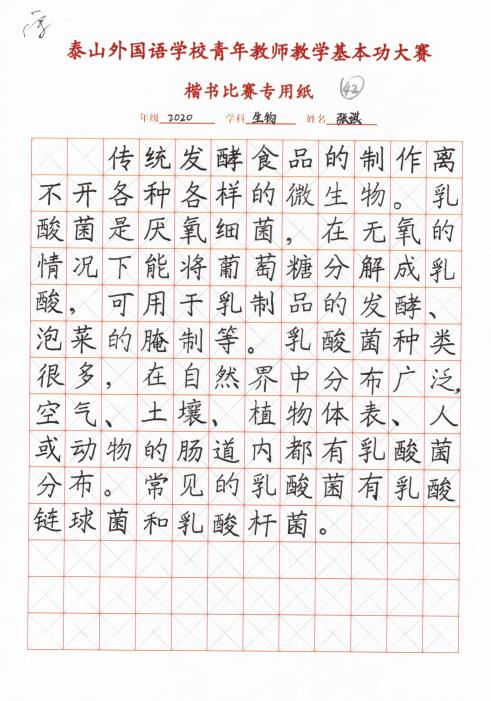 泰山外国语学校青年教师教学基本功大赛
楷书比赛专用纸 42
年级 2020 学科 生物 姓名 张淇
传统发酵食品的制作离
不开各种各样的微生物。乳
酸菌是厌氧细菌，在无氧的
情况下能将葡萄糖分解成乳
酸，可用于乳制品的发酵、
泡菜的腌制等。乳酸菌种类
很多，在自然界中分布广泛，
空气、土壤、植物体表、人
或动物的肠道内都有乳酸菌
分布。常见的乳酸菌有乳酸
链球菌和乳酸杆菌。